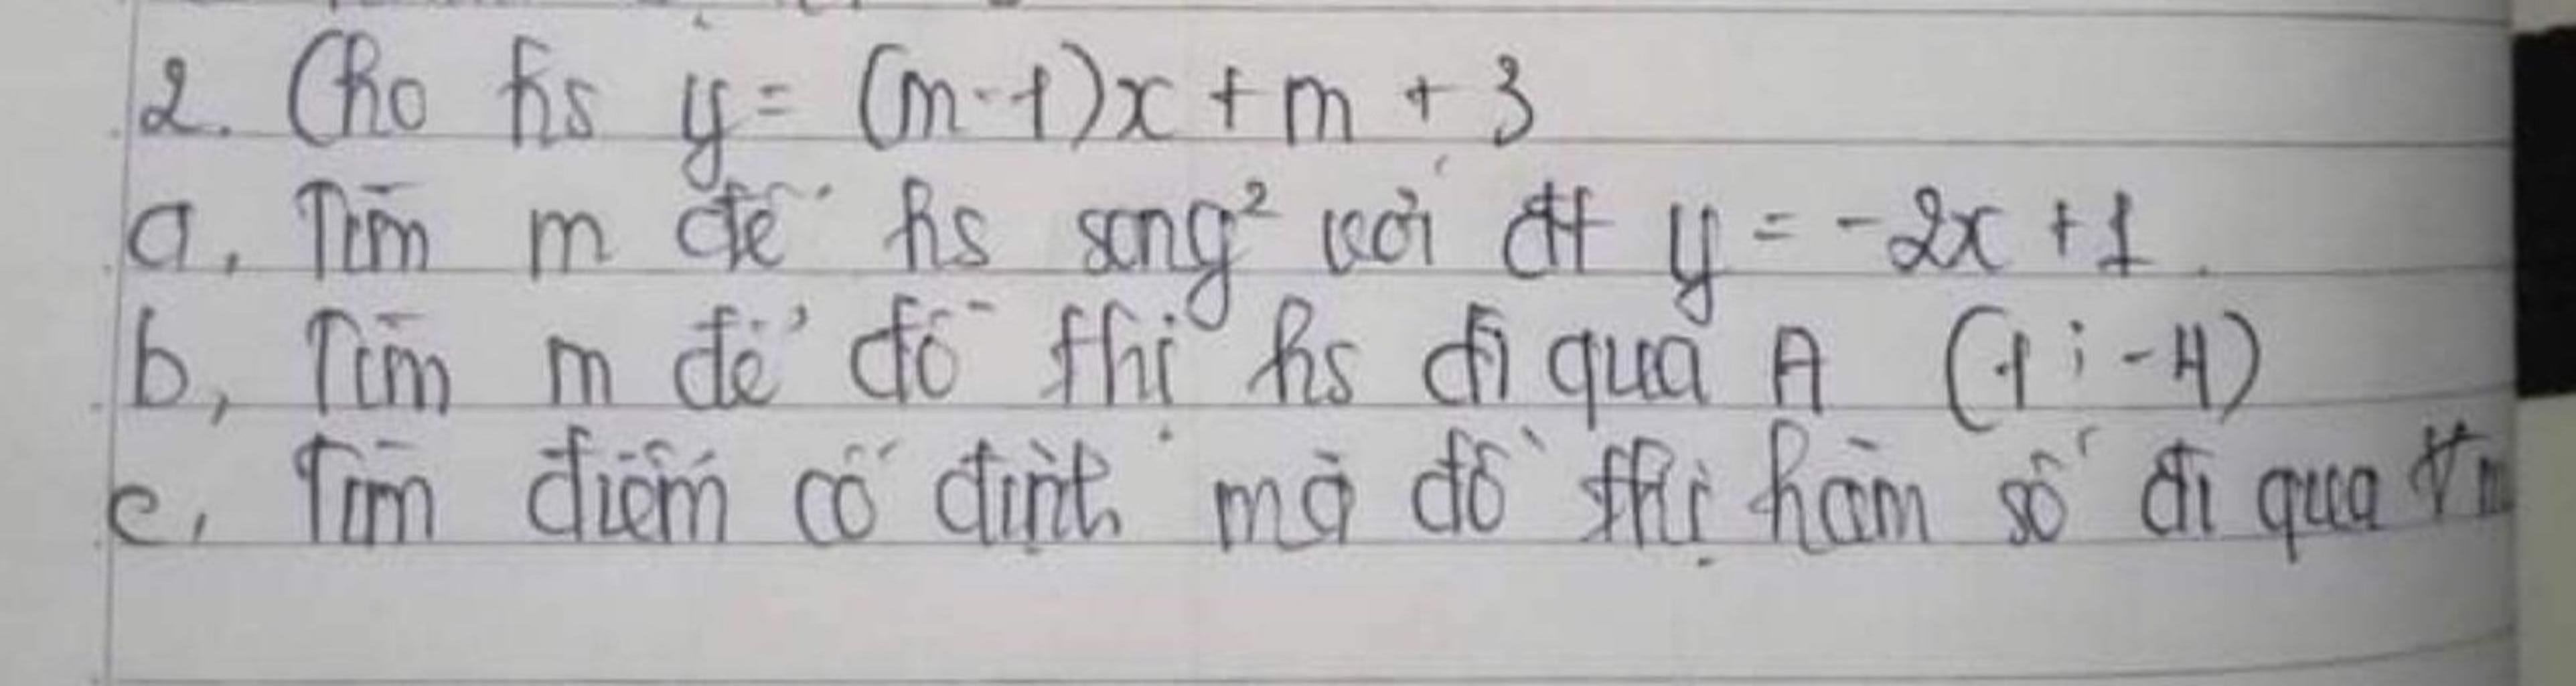 2. Cho hs y = (m-1)x + m + 3
a, Tìm m để hs song² với đt y = -2x + 1.
b, Tìm m để đồ thị hs đi qua A (1; -4)
c, Tìm điểm cố định mà đồ thị hàm số đi qua ∀m